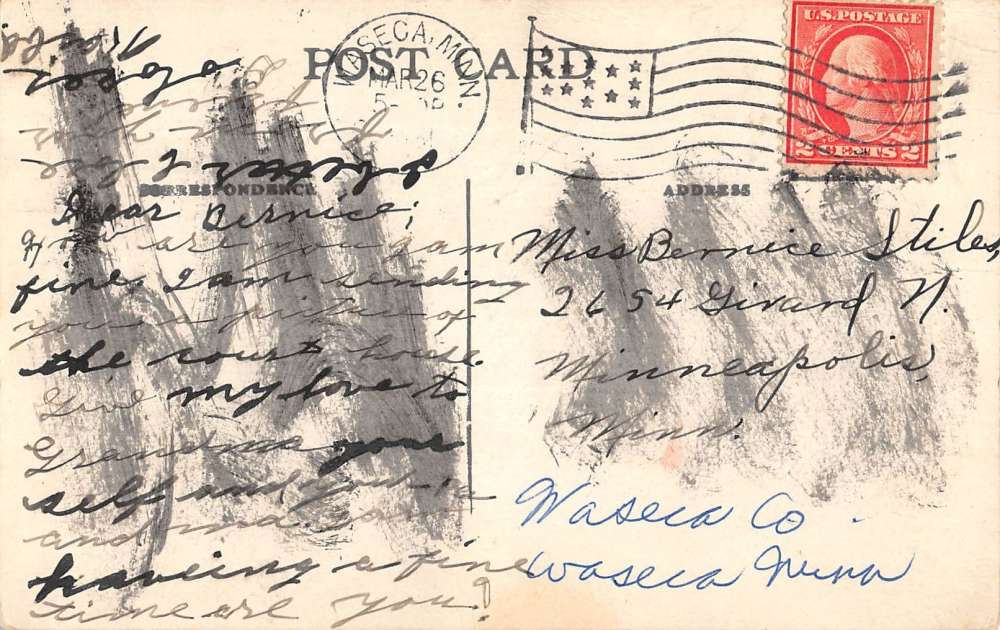 POST CARD
WASECA, MINN.
MAR 26
5-
U.S. POSTAGE
2 CENTS 2
CORRESPONDENCE
ADDRESS
Dear Bernice;
How are you I am
fine, I am sending
you a picture of
the court house
Give my love to
Grandma your
self and
and ma
haveing a fine
time are you?
Miss Bernice Stiles,
2654 Girard N.
Minneapolis,
Minn.
Waseca Co.
Waseca Minn